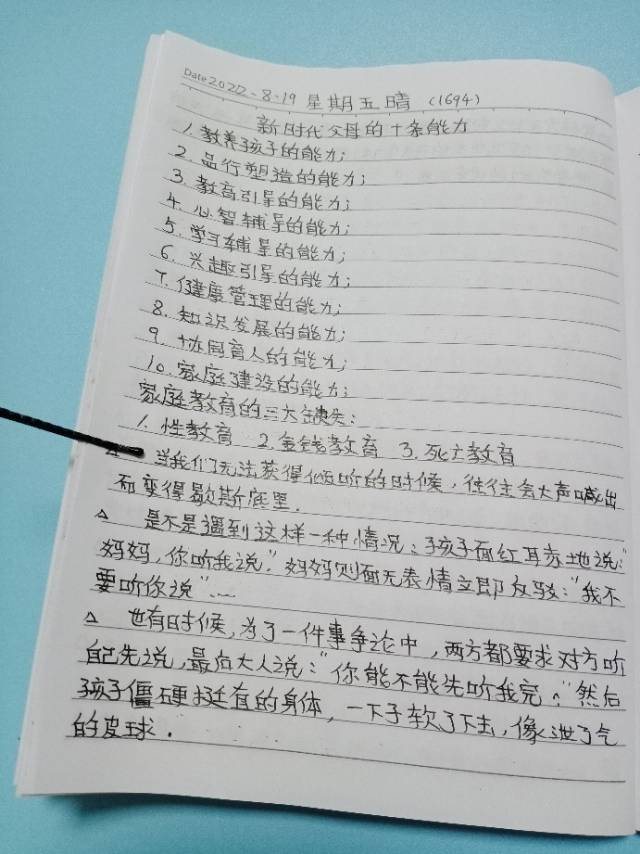 Date 2022-8-19 星期五晴 (1694)
新时代父母的十条能力
1. 教养孩子的能力;
2. 品行塑造的能力;
3. 教育引导的能力;
4. 心智辅导的能力;
5. 学习辅导的能力;
6. 兴趣引导的能力;
7. 健康管理的能力;
8. 知识发展的能力;
9. 协同育人的能力;
10. 家庭建设的能力;
家庭教育的三大缺失:
1. 性教育 2. 金钱教育 3. 死亡教育
△ 当我们无法获得倾听的时候,往往会大声喊出
而变得歇斯底里.
△ 是不是遇到这样一种情况:孩子面红耳赤地说:"
妈妈,你听我说."妈妈则面无表情立即反驳:"我不
要听你说"……
△ 也有时候,为了一件事争论中,两方都要求对方听
自己先说,最后大人说:"你能不能先听我完."然后
孩子僵硬挺直的身体,一下子软了下去,像泄了气
的皮球.